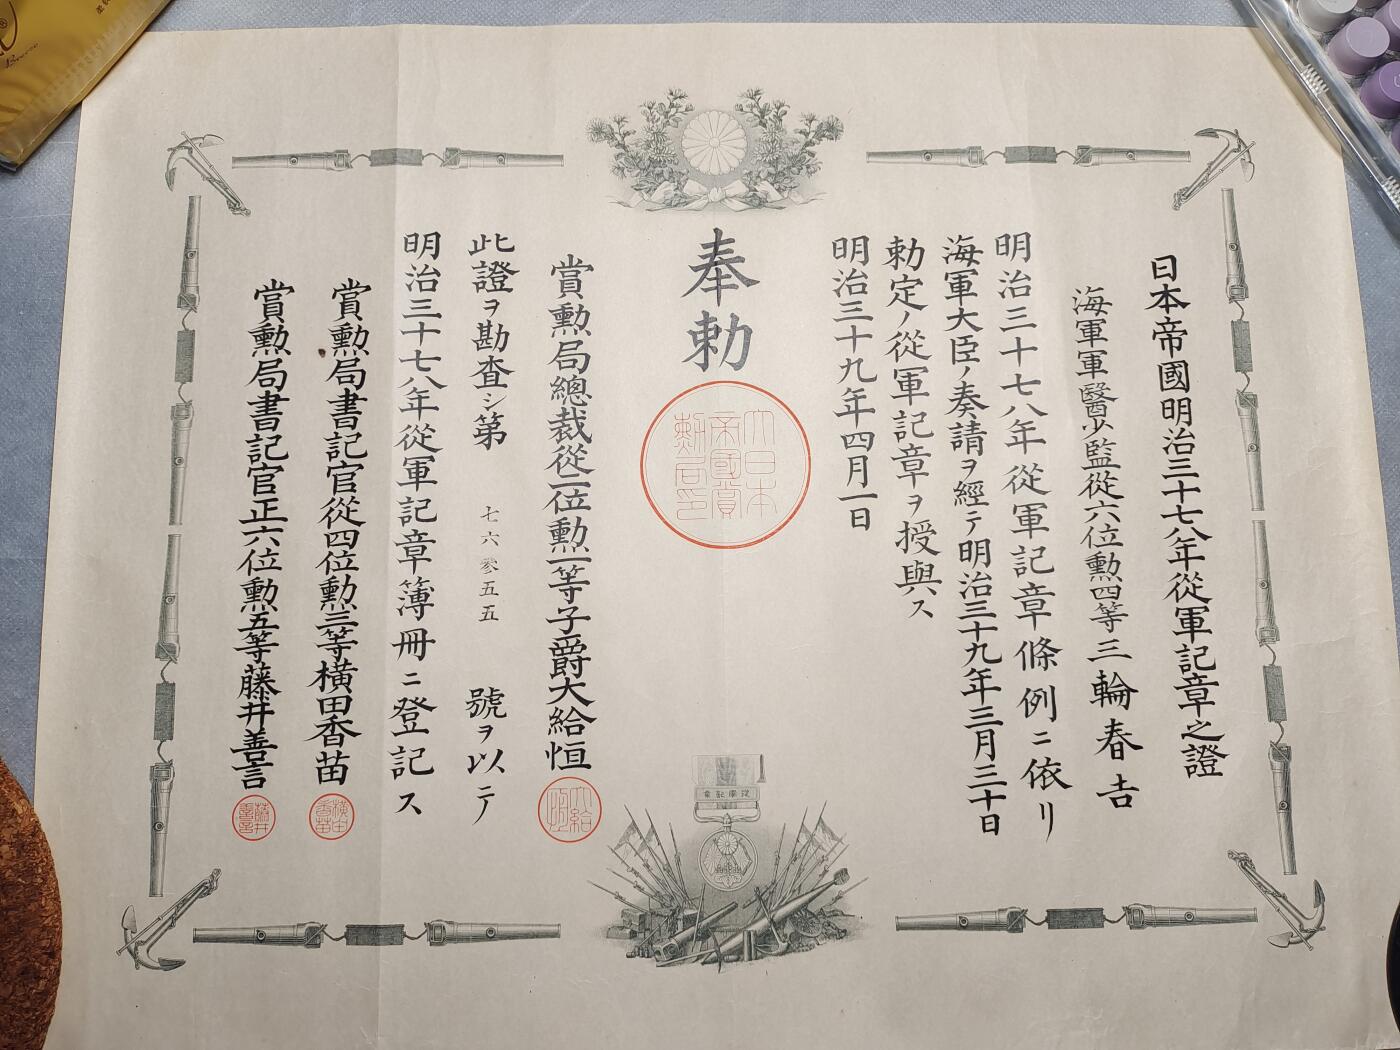 日本帝國明治三十七八年從軍記章之證
海軍軍醫少監從六位勲四等三輪春吉
明治三十七八年從軍記章條例ニ依リ
海軍大臣ノ奏請ヲ經テ明治三十九年三月三十日
勅定ノ從軍記章ヲ授與ス
明治三十九年四月一日
奉勅
大日本帝國賞勲局印
賞勲局總裁從二位勲一等子爵大給恒
此證ヲ勘査シ第七六參五五號ヲ以テ
明治三十七八年從軍記章簿冊ニ登記ス
賞勲局書記官從四位勲三等横田香苗
横田香苗
賞勲局書記官正六位勲五等藤井善言
藤井善言
從軍記章